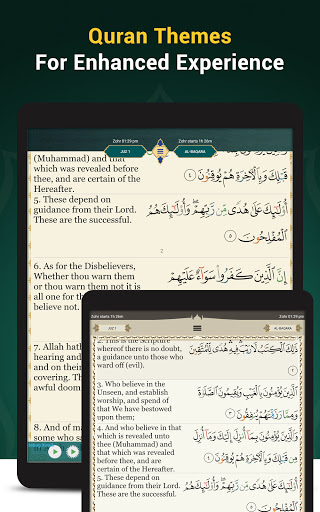 Quran Themes
For Enhanced Experience
Zohr 01:29 pm
Zohr starts 1h 26m
JUZ 1
AL-BAQARA
(Muhammad) and that
which was revealed before
thee, and are certain of the
Hereafter.
قَبْلِكَ وَبِالْآخِرَةِ هُمْ يُوقِنُونَ ٤
5. These depend on
guidance from their Lord.
These are the successful.
أُولَٰئِكَ عَلَىٰ هُدًى مِّن رَّبِّهِمْ وَأُولَٰئِكَ هُمُ
الْمُفْلِحُونَ ٥
2
6. As for the Disbelievers,
Whether thou warn them
or thou warn them not it is
all one for the
believe not.
إِنَّ الَّذِينَ كَفَرُوا سَوَاءٌ عَلَيْهِمْ
7. Allah hath
hearing and
and on their
covering. Th
awful doom
8. And of ma
some who sa
Zohr starts 1h 26m
Zohr 01:29 pm
JUZ 1
AL-BAQARA
2. This is the Scripture
whereof there is no doubt,
a guidance unto those who
ward off (evil).
ذَٰلِكَ الْكِتَابُ لَا رَيْبَ فِيهِ هُدًى لِّلْمُتَّقِينَ
٢
3. Who believe in the
Unseen, and establish
worship, and spend of
that We have bestowed
upon them;
الَّذِينَ يُؤْمِنُونَ بِالْغَيْبِ وَيُقِيمُونَ الصَّلَاةَ
وَمِمَّا رَزَقْنَاهُمْ يُنفِقُونَ ٣
4. And who believe in that
which is revealed unto
thee (Muhammad) and that
which was revealed before
thee, and are certain of the
Hereafter.
وَالَّذِينَ يُؤْمِنُونَ بِمَا أُنزِلَ إِلَيْكَ وَمَا أُنزِلَ
مِن قَبْلِكَ وَبِالْآخِرَةِ هُمْ يُوقِنُونَ ٤
5. These depend on
guidance from their Lord.
These are the successful.
أُولَٰئِكَ عَلَىٰ هُدًى مِّن رَّبِّهِمْ وَأُولَٰئِكَ هُمُ